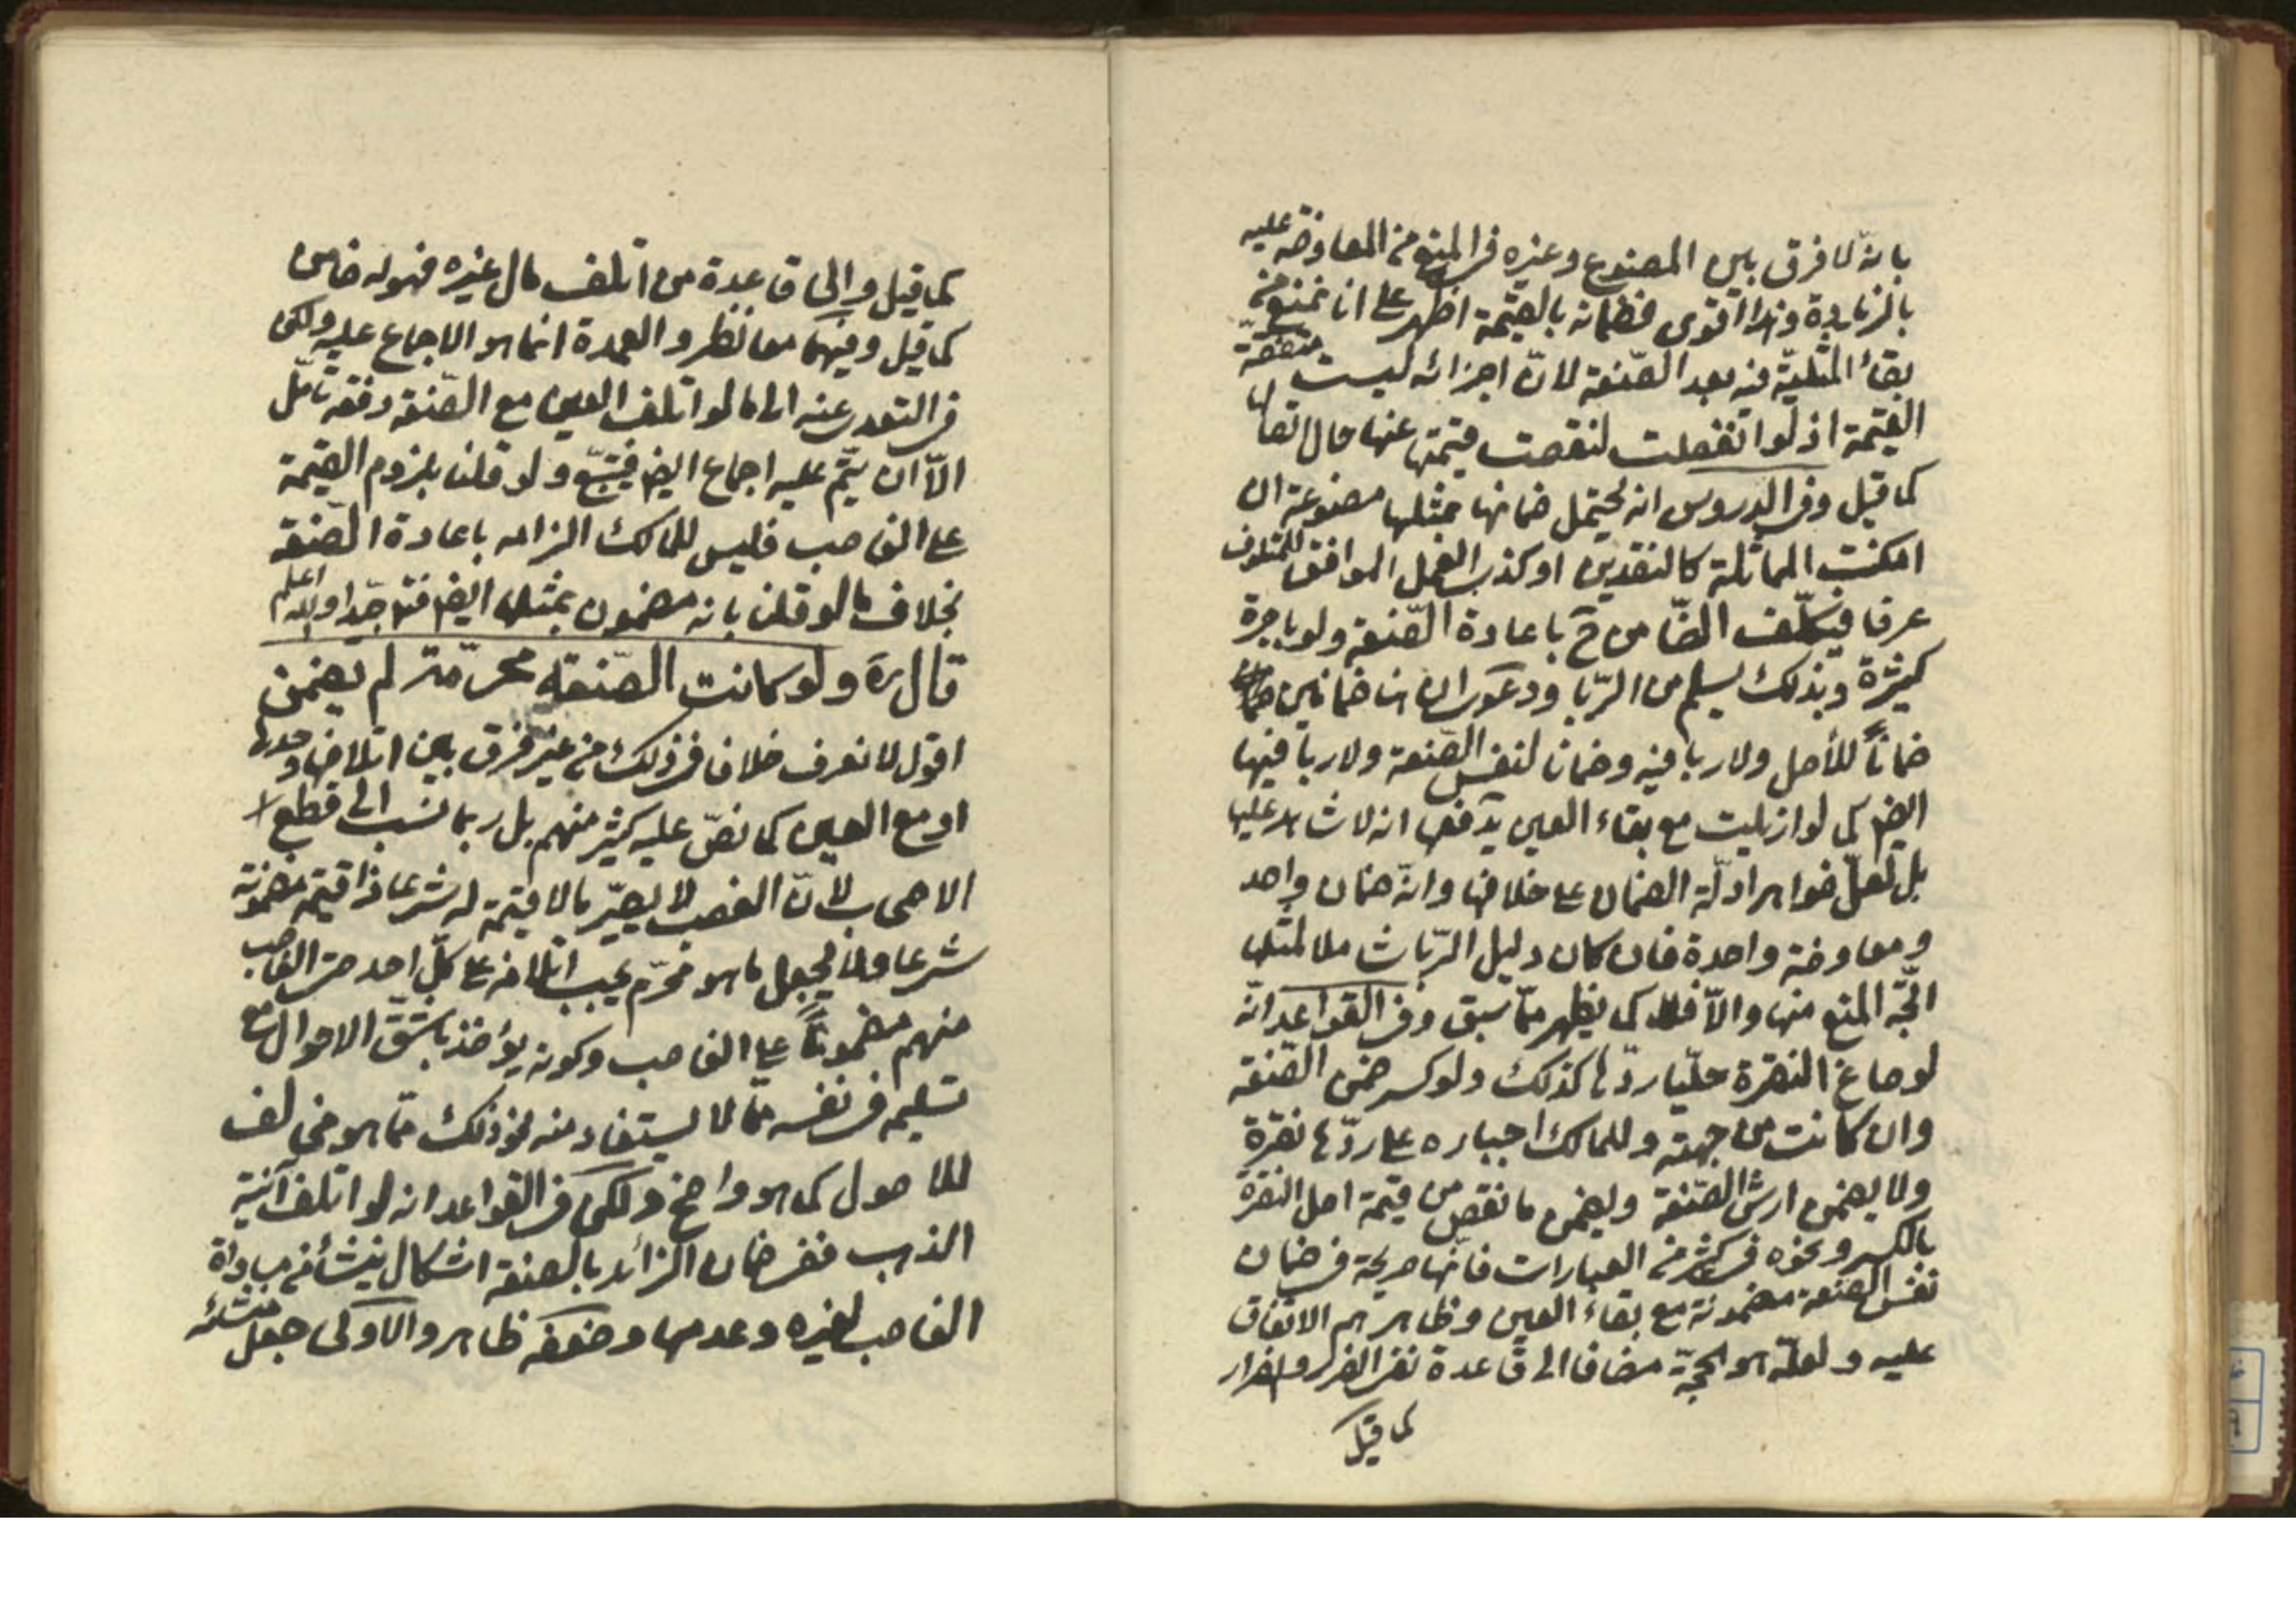 بانّه لا فرق بين المصنوع وغيره في المنع من المعاوضة عليه
بالزيادة وهذا اقوى فضمانه بالقيمة اظهر على انا نمنع من
بقاء المثليّة فيه بعد الصّنعة لانّ اجزائه ليست متفقة
القيمة اذ لو انفصلت لنقصت قيمتها عنها حال اتصالها
كما قيل وفي الدروس انه يحتمل ضمانها بمثلها مصنوعة ان
امكنت المماثلة كالنقدين او كذب العمل الموافق للمتلوف
عرفا فيكلّف الضّامن ح باعادة الصّنعة ولو باجرة
كثيرة وبذلك يسلم من الرّبا ودعوى ان هنا ضمانين
ضماناً للأصل ولا ربا فيه وضمانا لنفس الصّنعة ولا ربا فيها
ايضا كما لو ازيلت مع بقاء العين يدفعها انه لا شاهد عليها
بل لعلّ ظواهر ادلّة الضمان على خلافها وانّه ضمان واحد
ومعاوضة واحدة فان كان دليل الرّبا شاملا لمثلها
اتّجه المنع منها والاّ فلا كما يظهر ممّا سبق وفي القواعد انّه
لو صاغ النقرة حليّا ردّها كذلك ولو كسر ضمن الصّنعة
وان كانت من جهته وللمالك اجباره على ردّها نقرة
ولا يضمن ارش الصّنعة ويضمن ما نقص من قيمة اصل النقرة
بالكسر ونحوه في كثير من العبارات فانّها صريحة في ضمان
نفس الصّنعة مضمونة مع بقاء العين وظاهرهم الاتفاق
عليه ولعلّه هو الحجّة مضافا الى قاعدة نفي الضرر والضرار
كما قيل
كما قيل والى قاعدة من اتلف مال غيره فهو له ضامن
كما قيل وفيهما معا نظر والعمدة انما هو الاجماع عليه ولكن
في التعدي عنه الى ما لو اتلف العين مع الصّنعة دفعة تأمّل
الاّ ان يتمّ عليه اجماع ايضا فيتبّع ولو قلنا بلزوم القيمة
على الغاصب فليس للمالك الزامه باعادة الصّنعة
بخلاف ما لو قلنا بانه مضمون بمثلها ايضا فتأمّل جيّدا والله اعلم
قال ره ولو كانت الصّنعة محرّمة لم يضمن
اقول لا نعرف خلافا في ذلك من غير فرق بين اتلافها وحدها
او مع العين كما نصّ عليه كثير منهم بل ربما نسب الى قطع
الاصحاب لانّ الغصب لا يصيّر ما لا قيمة له شرعا ذا قيمة مضمونة
شرعا ولا يجعل ما هو محرّم يجب اتلافه على كلّ احد حتى الغاصب
منهم مضموناً على الغاصب وكونه يؤاخذ باشقّ الاحوال مع
تسليمه في نفسه ممّا لا يستفاد منه نحو ذلك ممّا هو مخالف
للاصول كما هو واضح ولكن في القواعد انه لو اتلف آنية
الذهب ففي ضمان الزائد بالصنعة اشكال ينشأ من مساواة
الغاصب لغيره وعدمها وضعفه ظاهر والاولى جعل منشئه